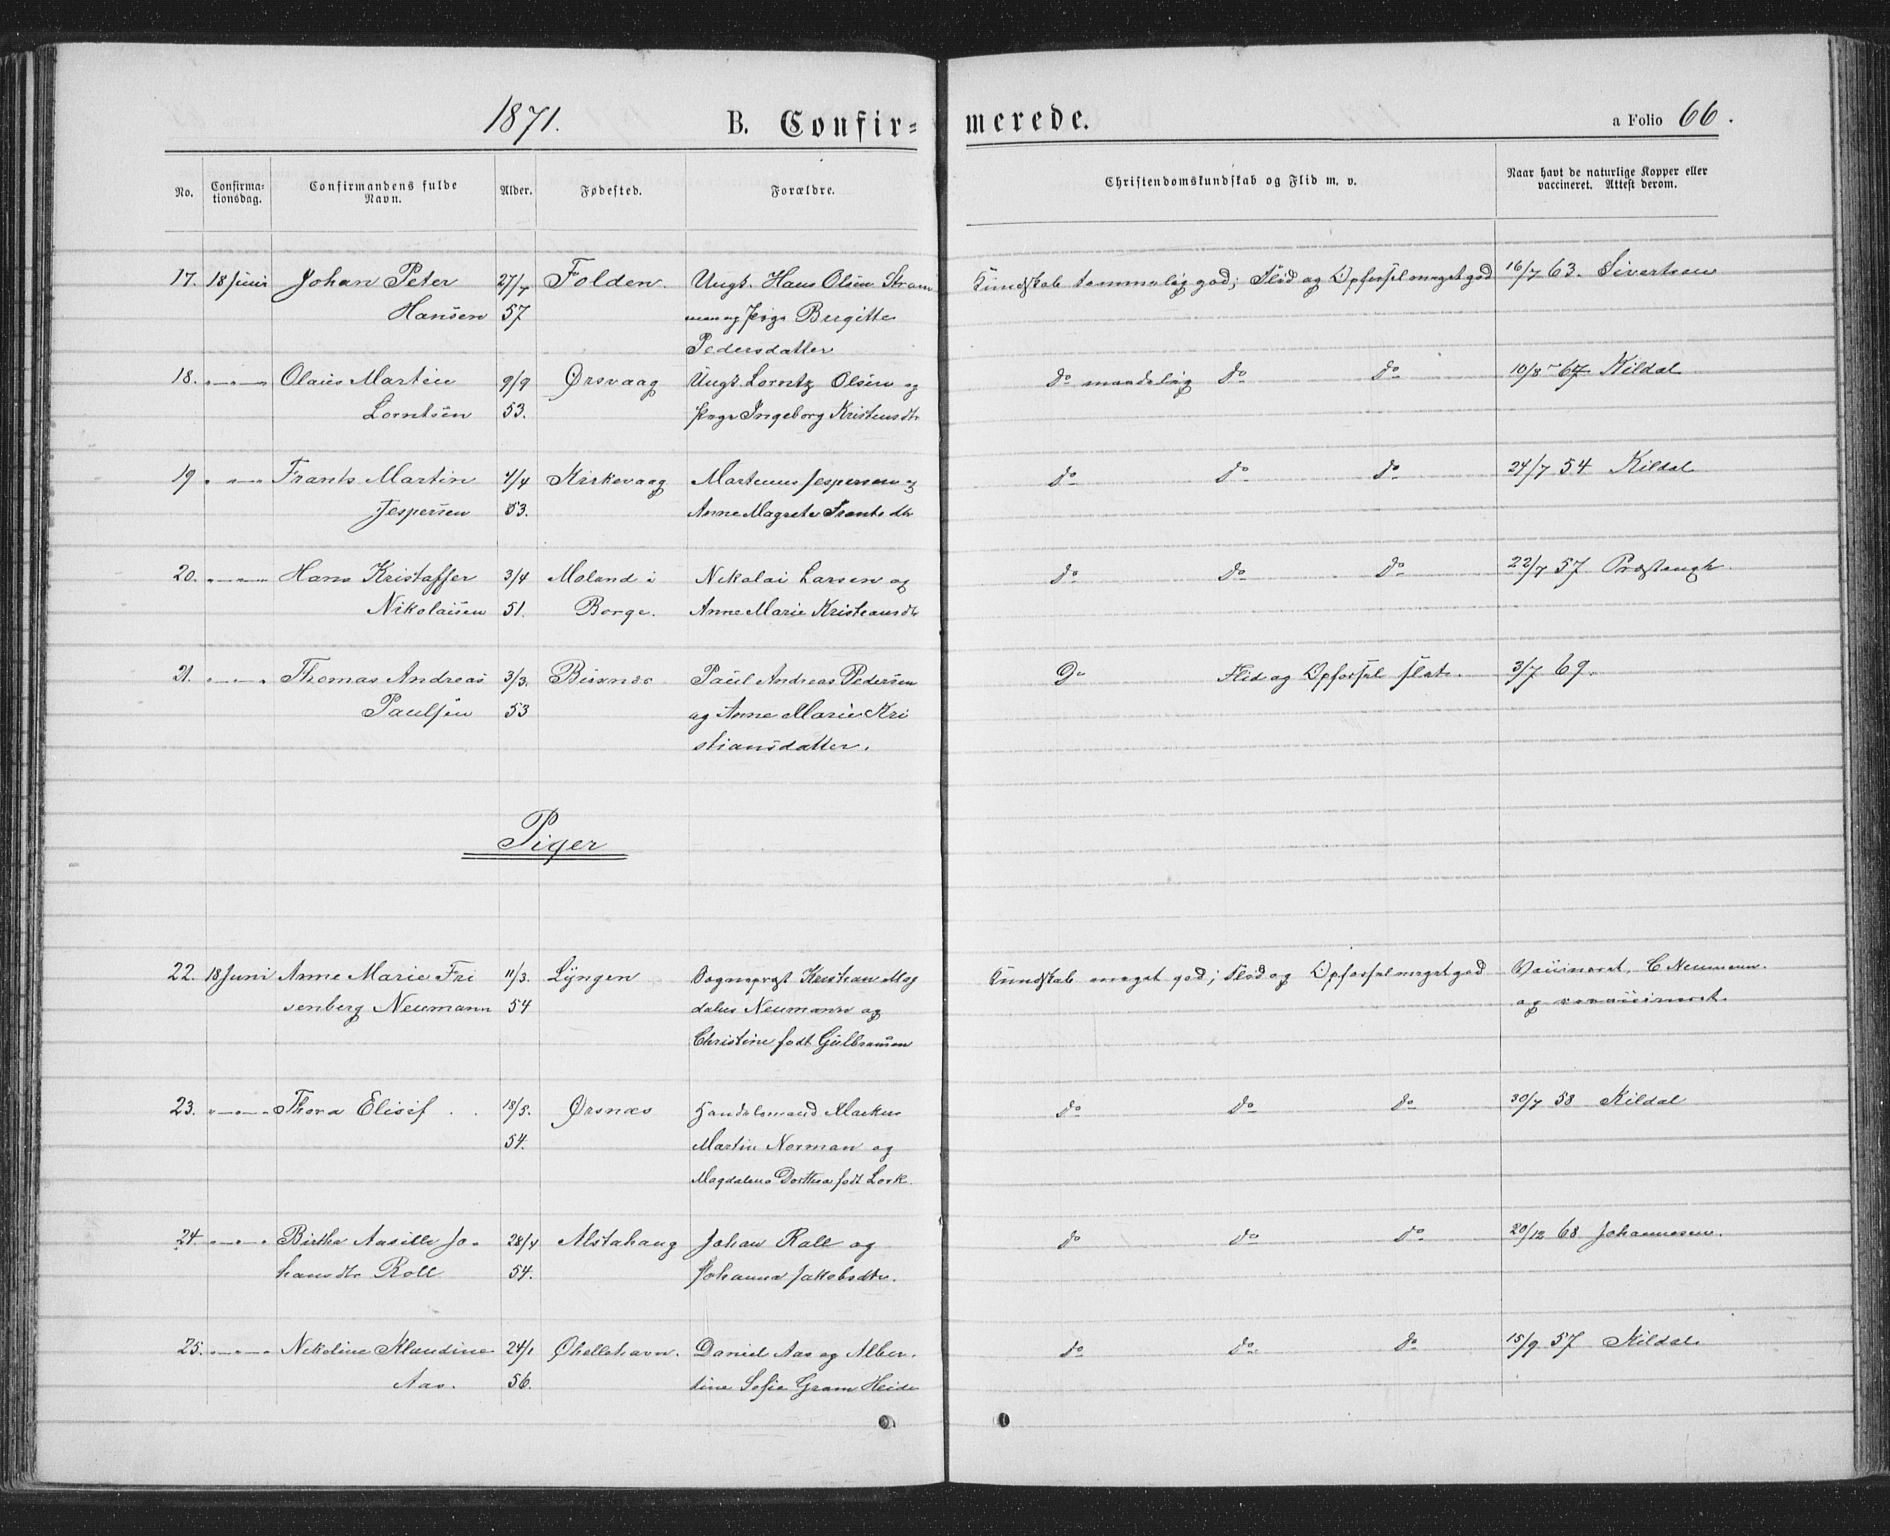 1871. B. Confir= merede. a Folio 66.
No. Confirma= tionsdag. Confirmandens fulde Navn. Alder. Fødested. Forældre. Christendomskundskab og Flid m. v. Naar havt de naturlige Kopper eller vaccineret. Attest derom.
17. 18 Juni Johan Peter 27/7 Folden. Ungk. Hans Olsen Strøm Kundskab temmelig god; Flid og Opførsel meget god 16/7 63. Sivertsen
Hansen 57 men og Pige Birgitte
Pedersdatter
18. Olaus Martin 9/9 Ørsvaag Ungk. Lorntz Olsen og do maadelig do do 10/8 67 Kildal
Lorntsen 53. Pige Ingeborg Kristensdtr
19 Frants Martin 4/4 Kirkevaag Martinus Jespersen og do do do 24/7 54 Kildal
Jespersen 53. Anne Magrete Frantsdtr
20. Hans Kristoffer 3/4 Moland i Nikolai Larsen og do do do 22/7 57
Nikolaisen 51. Borge. Anne Marie Kristiansdtr
21. Thomas Andreas 3/3. Paul Andreas Pedersen Do Flid og Opførsel slet. 3/7 69.
Paulsen 53 og Anne Marie Kri
stiansdatter.
Piger
22. 18 Juni Anne Marie Fri 11/3. Lyngen Sogneprest Kristian Mag Kundskab meget god; Flid og Opførsel meget god Vaccineret. C Neumann.
senberg Neumann 54 dalus Neumann og og revaccineret.
Christine født Gulbransen
23. Thora Elisif 18/5. Ørsnæs Handelsmand Markus do do do 30/7 58 Kildal
54. Martin Norman og
Magdalena Dorthea født Lork.
24. Birtha Aasille Jo- 28/4 Alstahaug Johan Roll og do do do 20/12 68 Johannesen.
hansdtr Roll 54. Johanna Jakobsdtr.
25. Nikoline Klaudine 24/1 Daniel Aas og Alber- do do do 15/9 57 Kildal
Aas. 56. tine Sofie Gram Heide